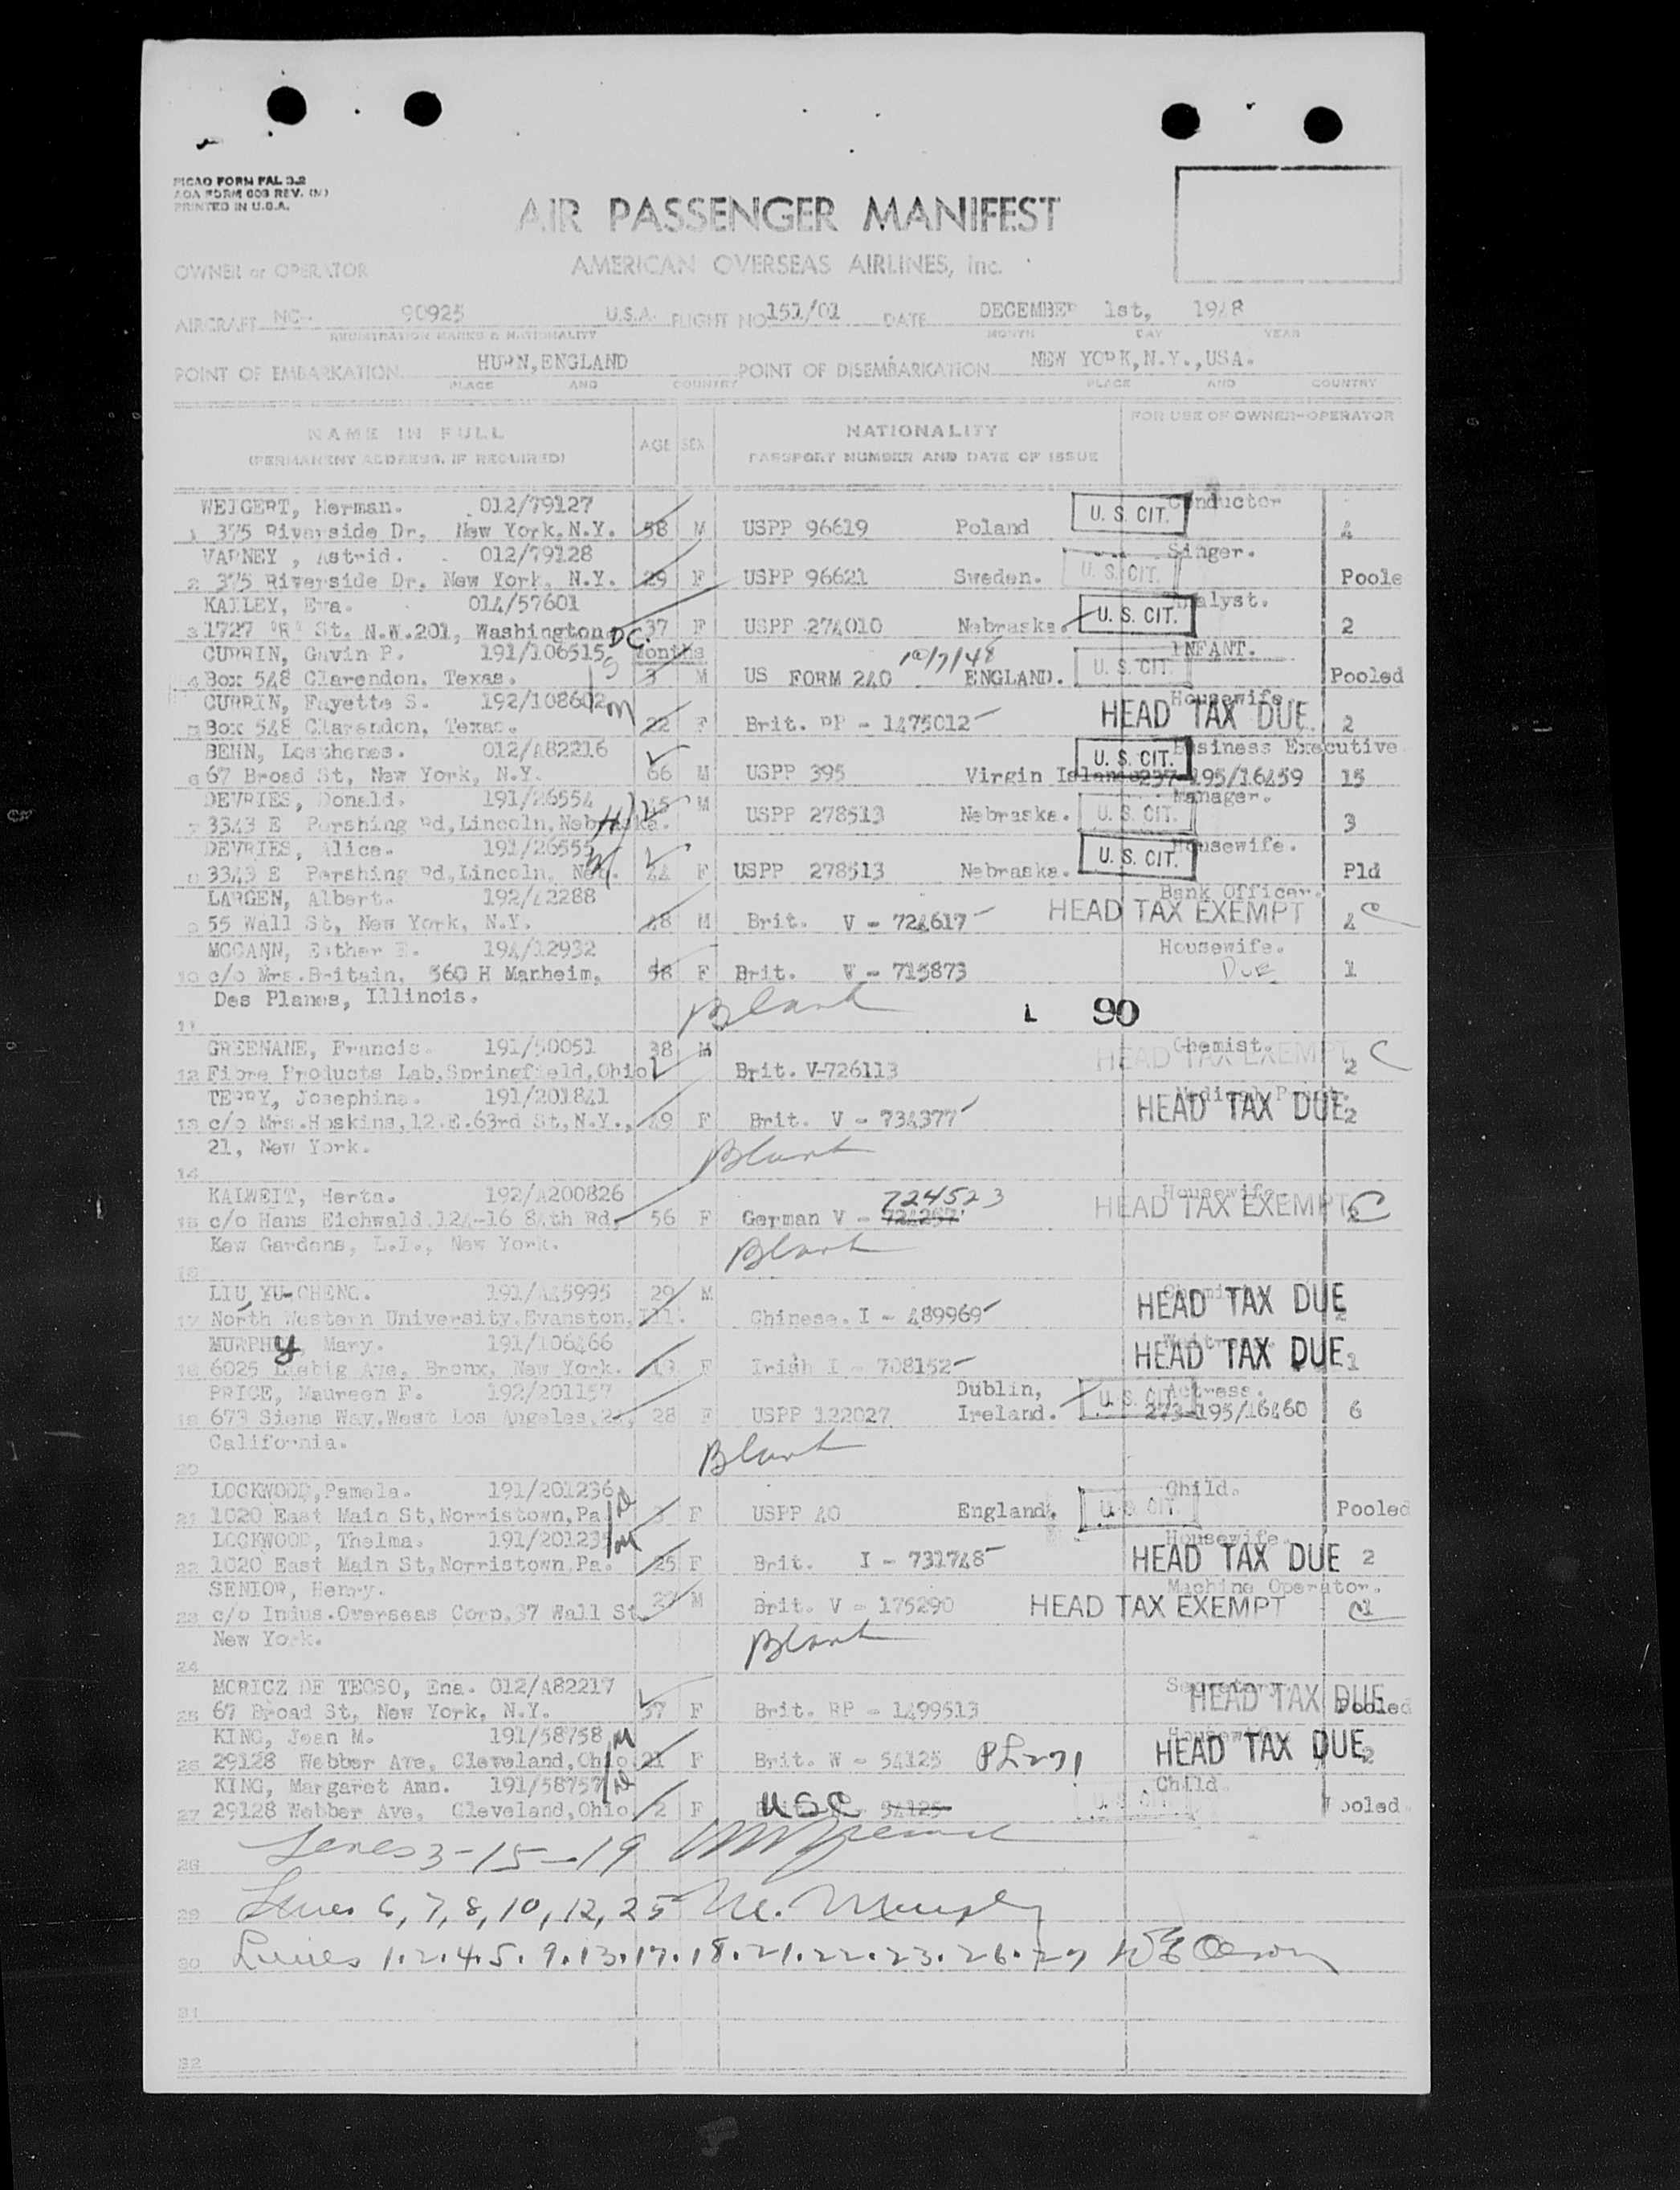 PICAO FORM FAL 3.2
AOA FORM 608 REV. (M)
PRINTED IN U.S.A.
AIR PASSENGER MANIFEST
OWNER or OPERATOR AMERICAN OVERSEAS AIRLINES, Inc.
AIRCRAFT NC- 90925 U.S.A. FLIGHT NO. 151/01 DATE DECEMBER 1st, 1948
REGISTRATION MARKS & NATIONALITY MONTH DAY YEAR
POINT OF EMBARKATION HURN, ENGLAND POINT OF DISEMBARKATION NEW YORK, N.Y., USA.
PLACE AND COUNTRY PLACE AND COUNTRY
NAME IN FULL AGE SEX NATIONALITY FOR USE OF OWNER-OPERATOR
(PERMANENT ADDRESS, IF REQUIRED) PASSPORT NUMBER AND DATE OF ISSUE
WEIGERT, Herman. 012/79127 Conductor
1 375 Riverside Dr, New York, N.Y. 58 M USPP 96619 Poland U. S. CIT. 4
VARNEY, Astrid. 012/79128 Singer.
2 375 Riverside Dr, New York, N.Y. 29 F USPP 96621 Sweden. U. S. CIT. Poole
KAILEY, Eva. 014/57601 Analyst.
3 1727 "R" St. N.W.201, Washington D.C. 37 F USPP 274010 Nebraska. U. S. CIT. 2
CURRIN, Gavin P. 191/106515 Months 10/7/48 INFANT.
4 Box 548 Clarendon, Texas. 3 M US FORM 240 ENGLAND. U. S. CIT. Pooled
CURRIN, Fayette S. 192/108602 m Housewife.
5 Box 548 Clarendon, Texas. 22 F Brit. PP - 1475012 HEAD TAX DUE 2
BEHN, Losthenes. 012/A82216 U. S. CIT. Business Executive
6 67 Broad St, New York, N.Y. 66 M USPP 395 Virgin Islands 237-195/16459 15
DEVRIES, Donald. 191/26554 H M Manager.
7 3343 E Pershing Rd, Lincoln, Nebraska. USPP 278513 Nebraska. U. S. CIT. 3
DEVRIES, Alice. 191/26555 W Housewife.
8 3343 E Pershing Rd, Lincoln, Neb. 44 F USPP 278513 Nebraska. U. S. CIT. Pld
LARGEN, Albert. 192/42288 Bank Officer.
9 55 Wall St, New York, N.Y. 48 M Brit. V - 724617 HEAD TAX EXEMPT 4 C
MCCANN, Esther 194/12932 Housewife.
10 c/o Mrs. Britain, 560 H Manheim, 58 F Brit. V - 715873 DUE 1
Des Planes, Illinois.
11 Blank L 90
GREENANE, Francis. 191/50051 38 M Chemist.
12 Fibre Products Lab, Springfield, Ohio Brit. V-726113 HEAD TAX EXEMPT 2 C
TERRY, Josephine. 191/201841
13 c/o Mrs. Hoskins, 12.E.63rd St, N.Y., 49 F Brit. V - 734377 HEAD TAX DUE 2
21, New York.
14 Blank
KALWEIT, Herta. 192/A200826 724523 Housewife.
15 c/o Hans Eichwald 124-16 84th Rd. 56 F German V - 724257 HEAD TAX EXEMPT C
Kew Gardens, L.I., New York. Blank
16
LIU, YU-CHENG. 191/A45995 29 M
17 North Western University, Evanston, Ill. Chinese. I - 489969 HEAD TAX DUE
MURPHY, Mary. 191/106466 Waitress.
18 6025 Liebig Ave, Bronx, New York. 19 F Irish I - 708152 HEAD TAX DUE 1
PRICE, Maureen F. 192/201157 Dublin, Actress.
19 673 Siena Way, West Los Angeles, 24, 28 F USPP 122027 Ireland. U. S. CIT. 273-195/16460 6
California.
20 Blank
LOCKWOOD, Pamela. 191/201236 D Child.
21 1020 East Main St, Norristown, Pa 3 F USPP 40 England. U. S. CIT. Pooled
LOCKWOOD, Thelma. 191/201235 M Housewife.
22 1020 East Main St, Norristown, Pa. 25 F Brit. I - 731748 HEAD TAX DUE 2
SENIOR, Henry. Machine Operator.
23 c/o Indus. Overseas Corp, 37 Wall St 29 M Brit. V - 175290 HEAD TAX EXEMPT 1 C
New York. Blank
24
MORICZ DE TECSO, Ena. 012/A82217 Secretary
25 67 Broad St, New York, N.Y. 37 F Brit. PP - 1499513 HEAD TAX DUE Pooled
KING, Jean M. 191/58758 M Housewife.
26 29128 Webber Ave, Cleveland, Ohio 21 F Brit. W - 54125 PL271 HEAD TAX DUE 2
KING, Margaret Ann. 191/58757 D Child
27 29128 Webber Ave, Cleveland, Ohio 2 F USC 54125 U. S. CIT. Pooled
28 Lines 3-15-19
29 Lines 6, 7, 8, 10, 12, 25 M. Murphy
30 Lines 1.2.4.5.9.13.17.18.21.22.23.26.27 W E Olson
31
32